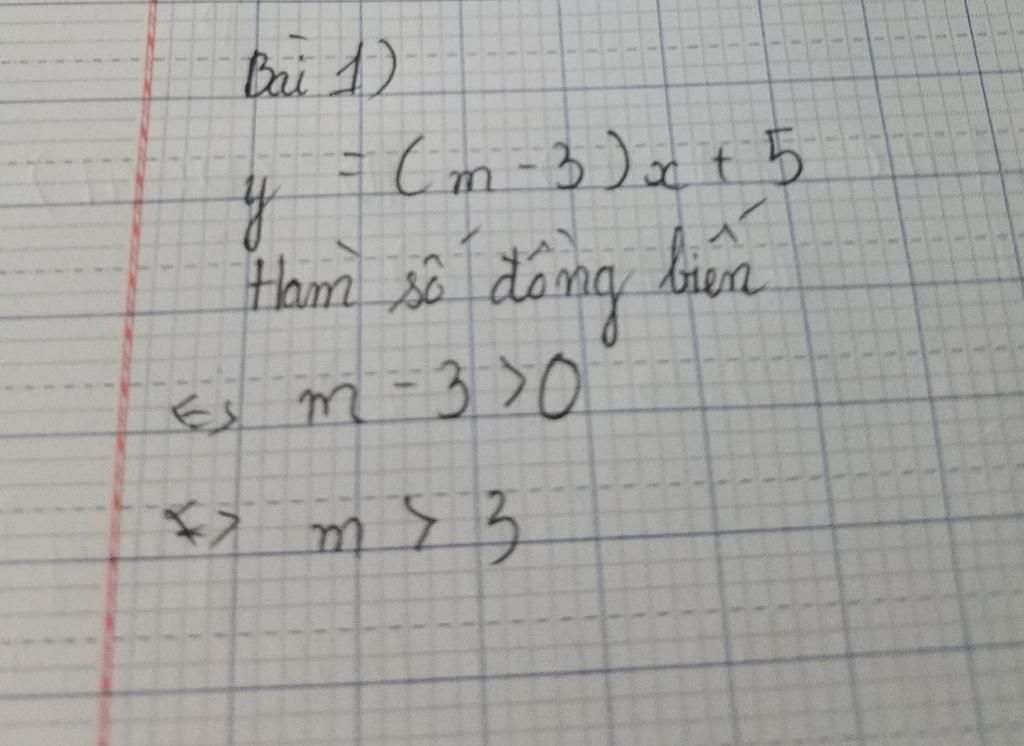 Bài 1)
y = (m - 3)x + 5
Hàm số đồng biến
<=> m - 3 > 0
<=> m > 3